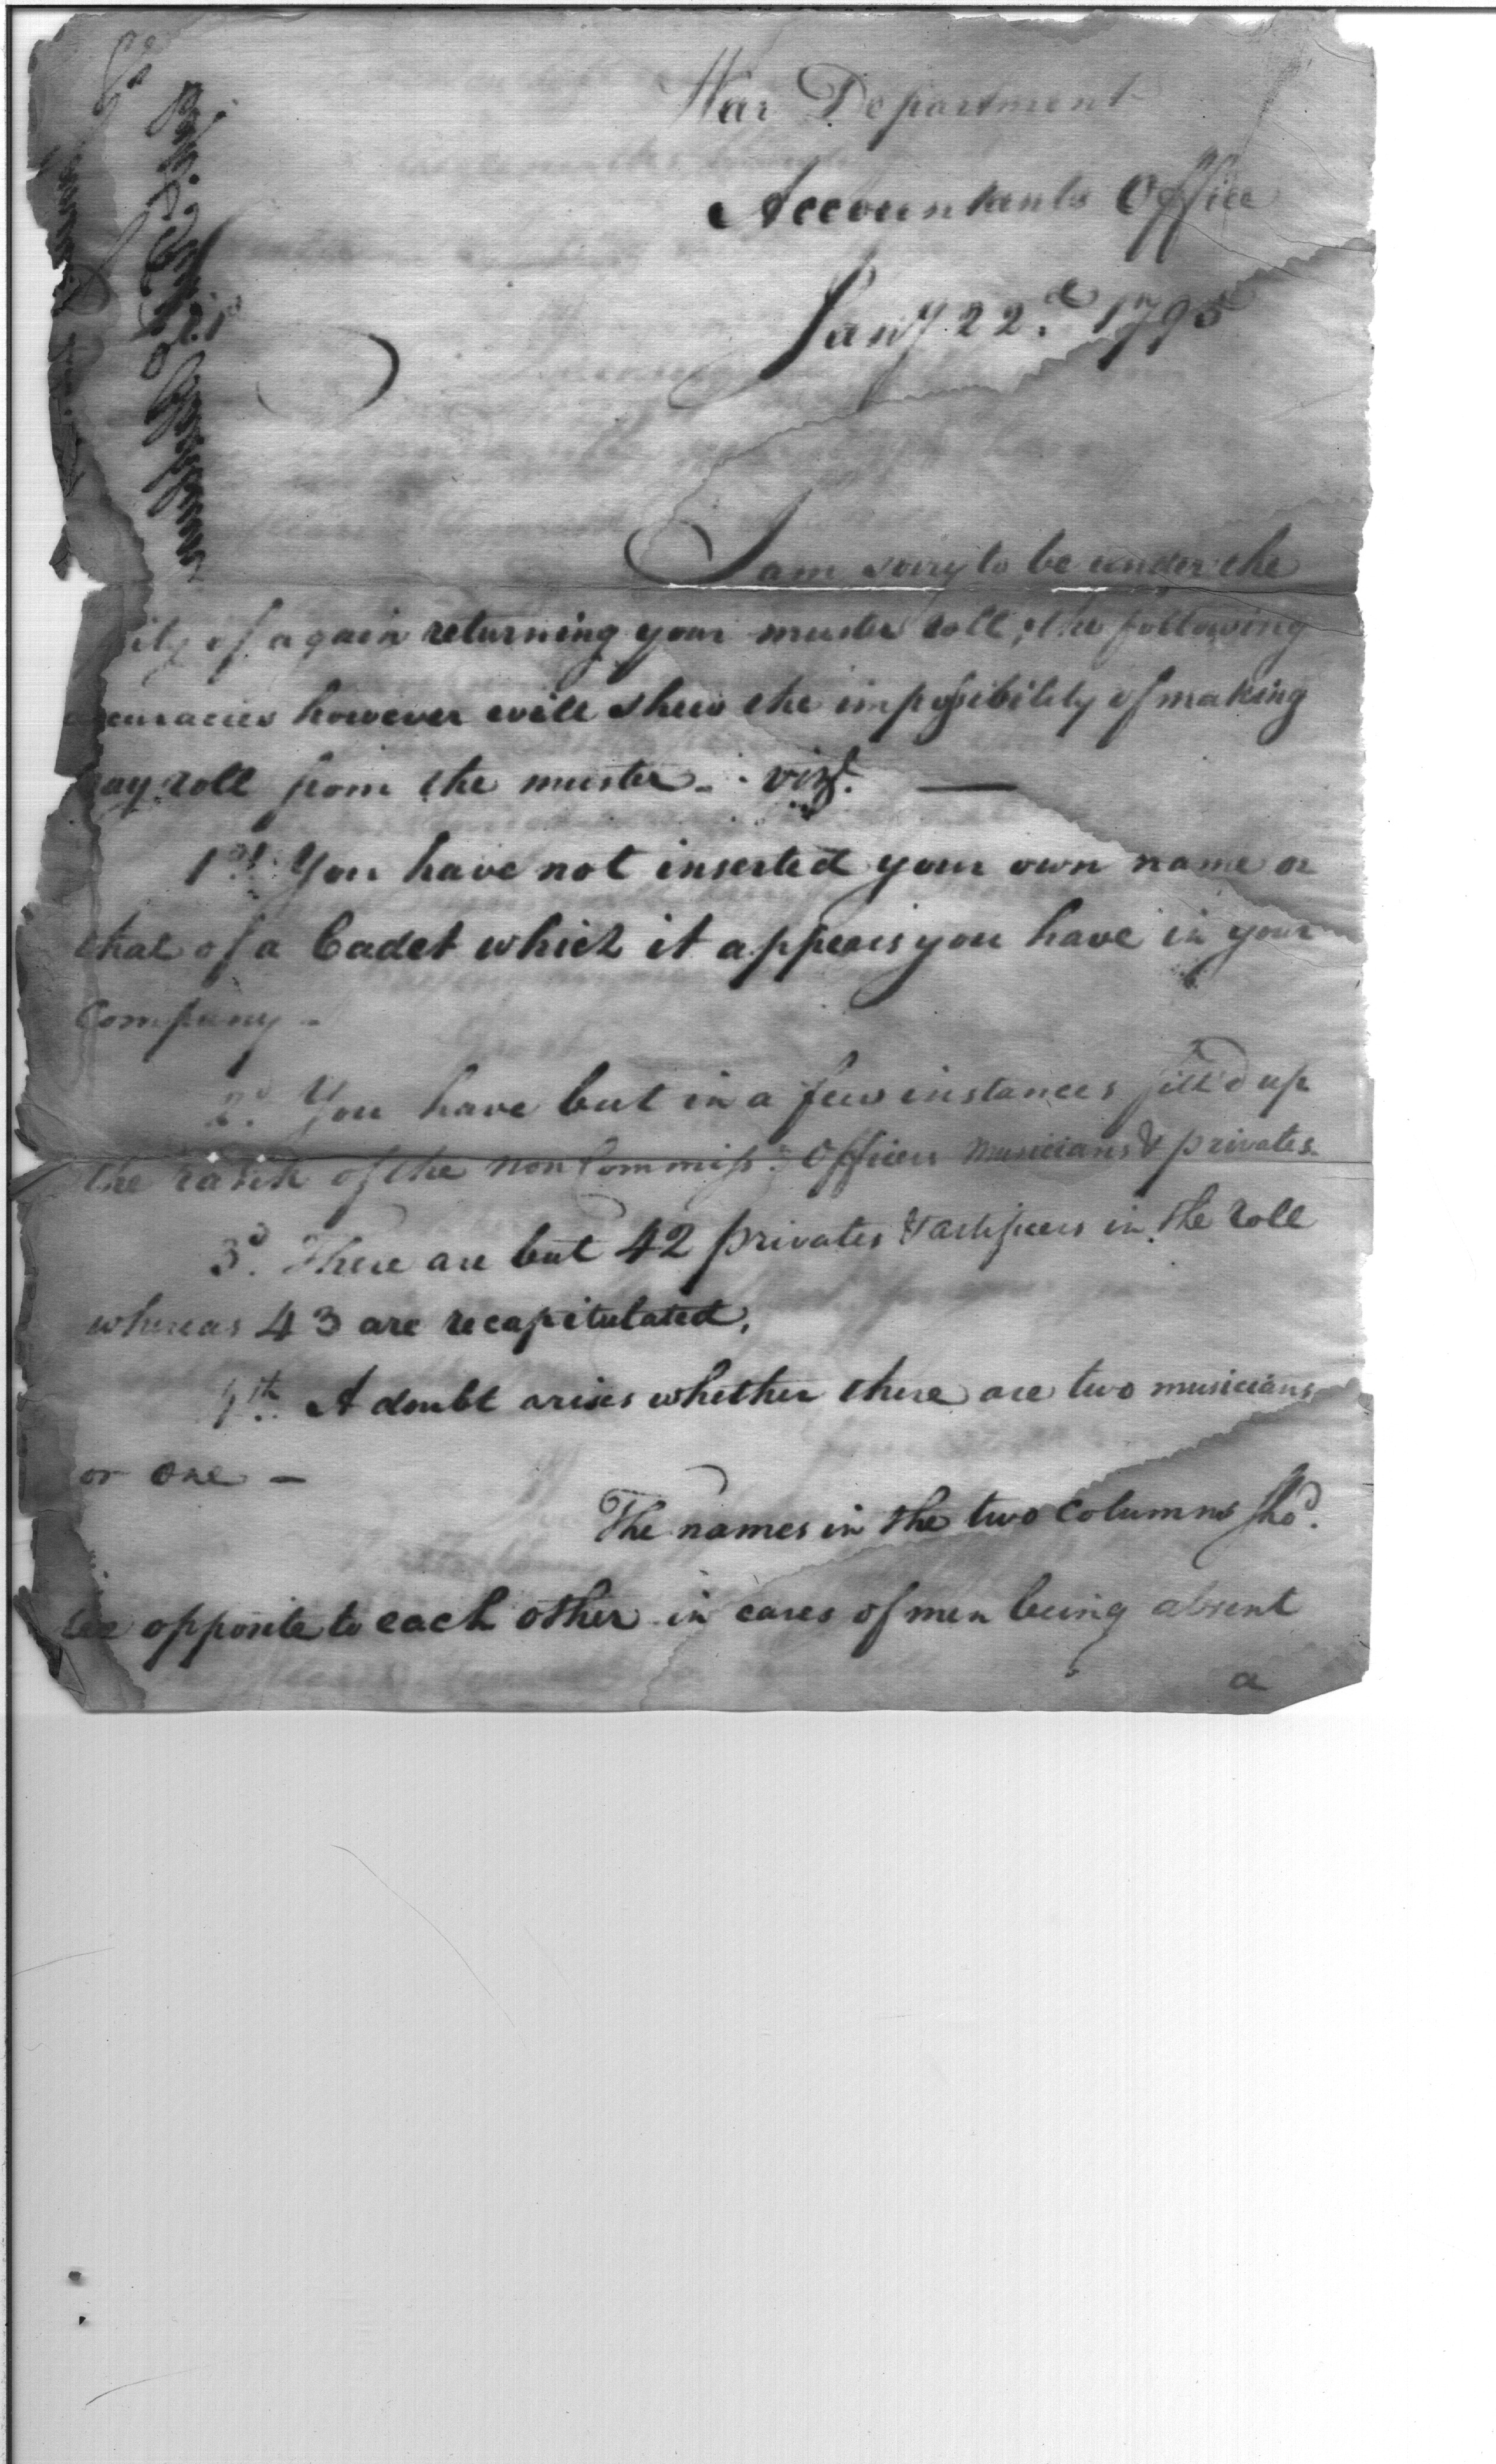 War Department
Accountants Office
Jany. 22d. 1795
I am sorry to be under the
ity of again returning your muster roll; the following
ccuracies however will shew the impossibility of making
ay roll from the muster - vizt. —
1st. You have not inserted your own name or
that of a Cadet which it appears you have in your
Company -
2d. You have but in a few instances fill'd up
the rank of the non Commissd. Officers musicians & privates.
3d. There are but 42 privates & artificers in the roll
whereas 43 are recapitulated.
4th. A doubt arises whether there are two musicians
or one -
The names in the two Columns shod.
be opposite to each other in cases of men being absent
a